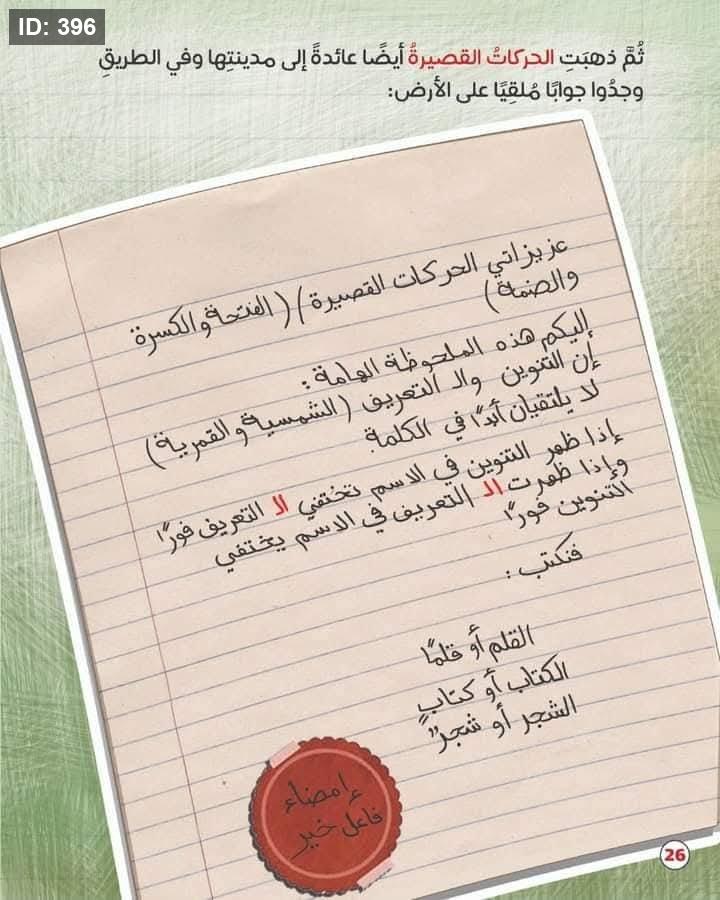 ID: 396
ثُمَّ ذهبَتِ الحركاتُ القصيرةُ أيضًا عائدةً إلى مدينتِها وفي الطريقِ
وجدُوا جوابًا مُلقِيًا على الأرض:
عزيزاتي الحركات القصيرة / (الفتحة والكسرة
والضمة)
إليكم هذه الملحوظة الهامة :
إن التنوين والـ التعريف (الشمسية والقمرية)
لا يلتقيان أبدًا في الكلمة.
إذا ظهر التنوين في الاسم تختفي الـ التعريف فورًا
وإذا ظهرت الـ التعريف في الاسم يختفي
التنوين فورًا
فنكتب :
القلم أو قلمًا
الكتاب أو كتابٍ
الشجر أو شجرٌ
إمضاء
فاعل خير
26